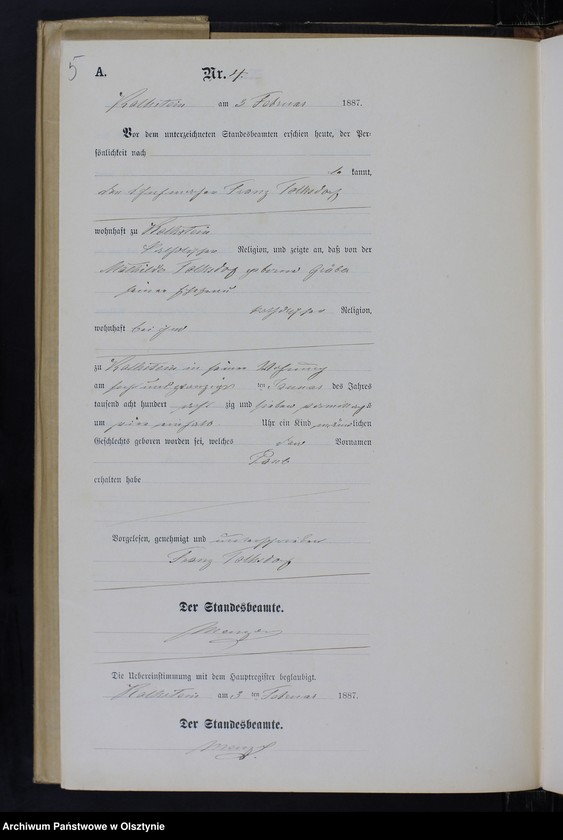 5
A. Nr. 4.
Kalkstein am 3 Februar 1887.
Vor dem unterzeichneten Standesbeamten erschien heute, der Per-
sönlichkeit nach
kannt,
der Franz Tolksdorf
wohnhaft zu Kalkstein
katholischer Religion, und zeigte an, daß von der
Mathilde Tolksdorf geborene
seiner Ehefrau
katholischer Religion,
wohnhaft bei ihm
zu Kalkstein in seiner Wohnung
am sechsundzwanzigsten ten Januar des Jahres
tausend acht hundert acht zig und sieben vormittags
um Uhr ein Kind männlichen
Geschlechts geboren worden sei, welches den Vornamen
Paul
erhalten habe
Vorgelesen, genehmigt und unterschrieben
Franz Tolksdorf
Der Standesbeamte.
Die Uebereinstimmung mit dem Hauptregister beglaubigt.
Kalkstein am 3 ten Februar 1887.
Der Standesbeamte.
Archiwum Państwowe w Olsztynie